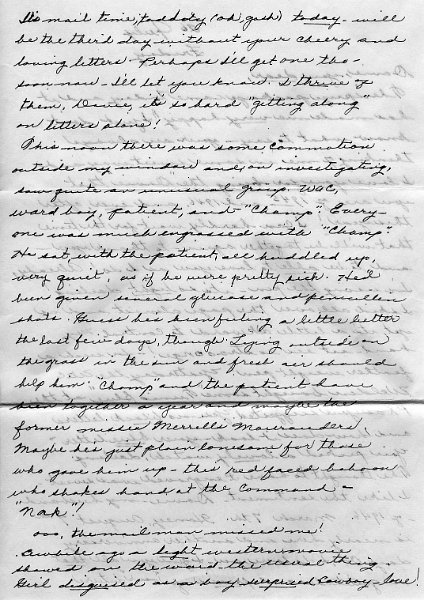 It's mail time, toddoty (oh, gosh) today - will
be the third day without your cheery and
loving letters. Perhaps I'll get one tho -
soon now - I'll let you know. I thrive of
them, Davie, it's so hard "getting along"
on letters alone!
This noon there was some commotion
outside my window and, on investigating,
saw quite an unusual group. WAC,
ward boy, patient, and "Champ". Every-
one was much engrossed with "Champ".
He sat, with the patient, all huddled up,
very quiet, as if he were pretty sick. He'd
been given several glucose and penicillin
shots. Guess he's been feeling a little better
the last few days, though. Lying outside on
the grass in the sun and fresh air should
help him. "Champ" and the patient have
been together a year and maybe the
former misses Merrell's Mauraunders,
Maybe he's just plain lonesome for those
who gave him up - this red faced baboon
who shakes hand at the command -
"Nak"!
ooo, the mail man missed me!
Awhile ago a light western movie
showed on the ward. the usual thing.
Girl disguised as a boy surprised Cowboy - love!